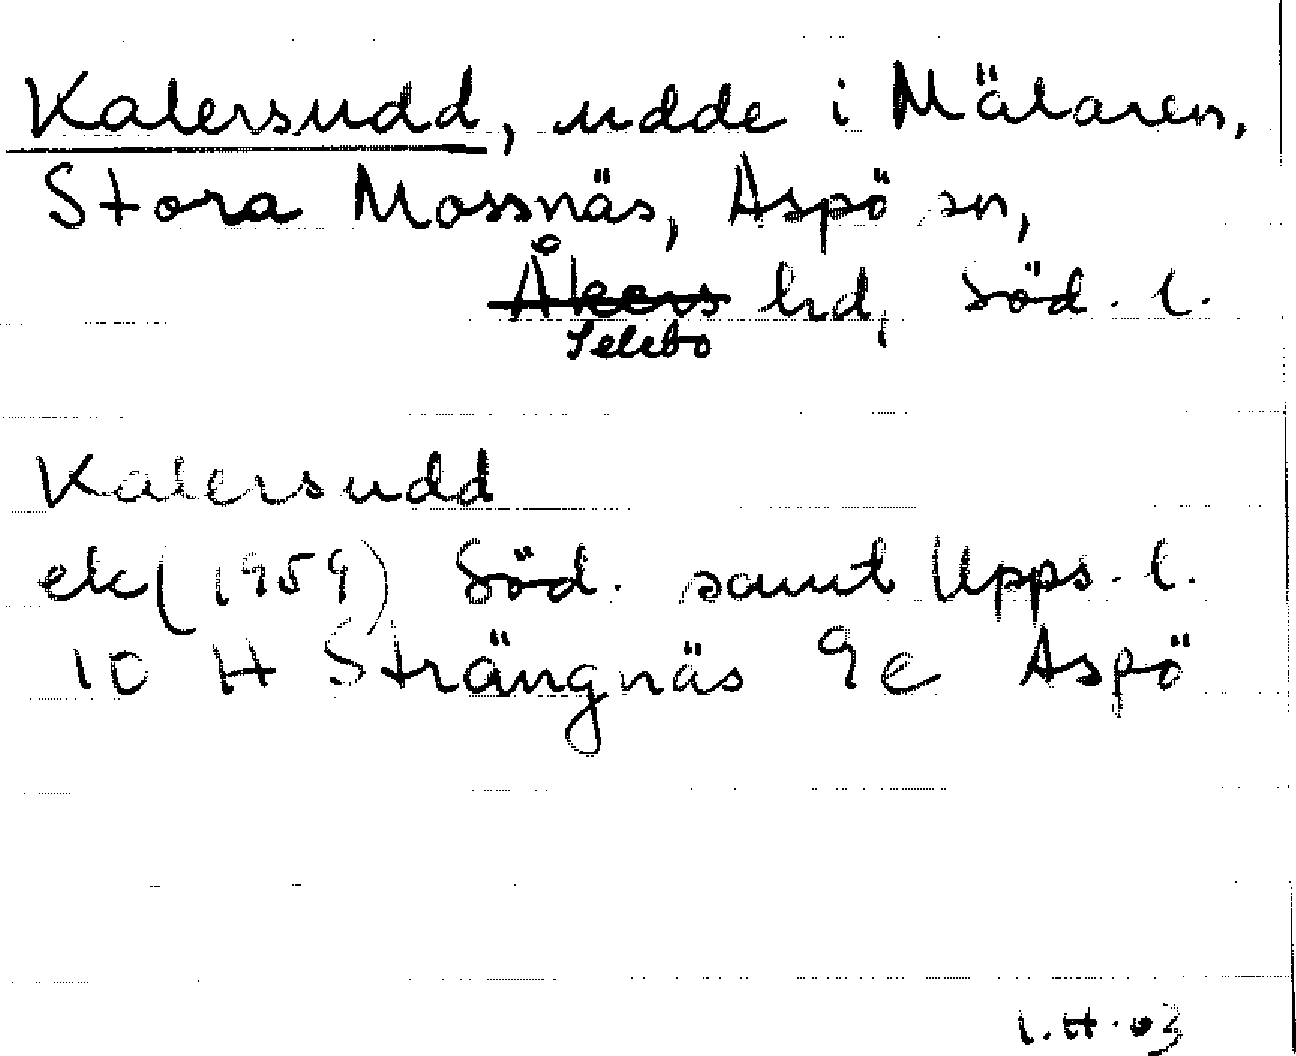 Kalersudd, udde i Mälaren,
Stora Mossnäs, Aspö sn,
Åkers hd, Söd. l.
Selebo
Kalersudd
ek (1959) Söd. samt Upps. l.
10 H Strängnäs 9c Aspö
I.H.03